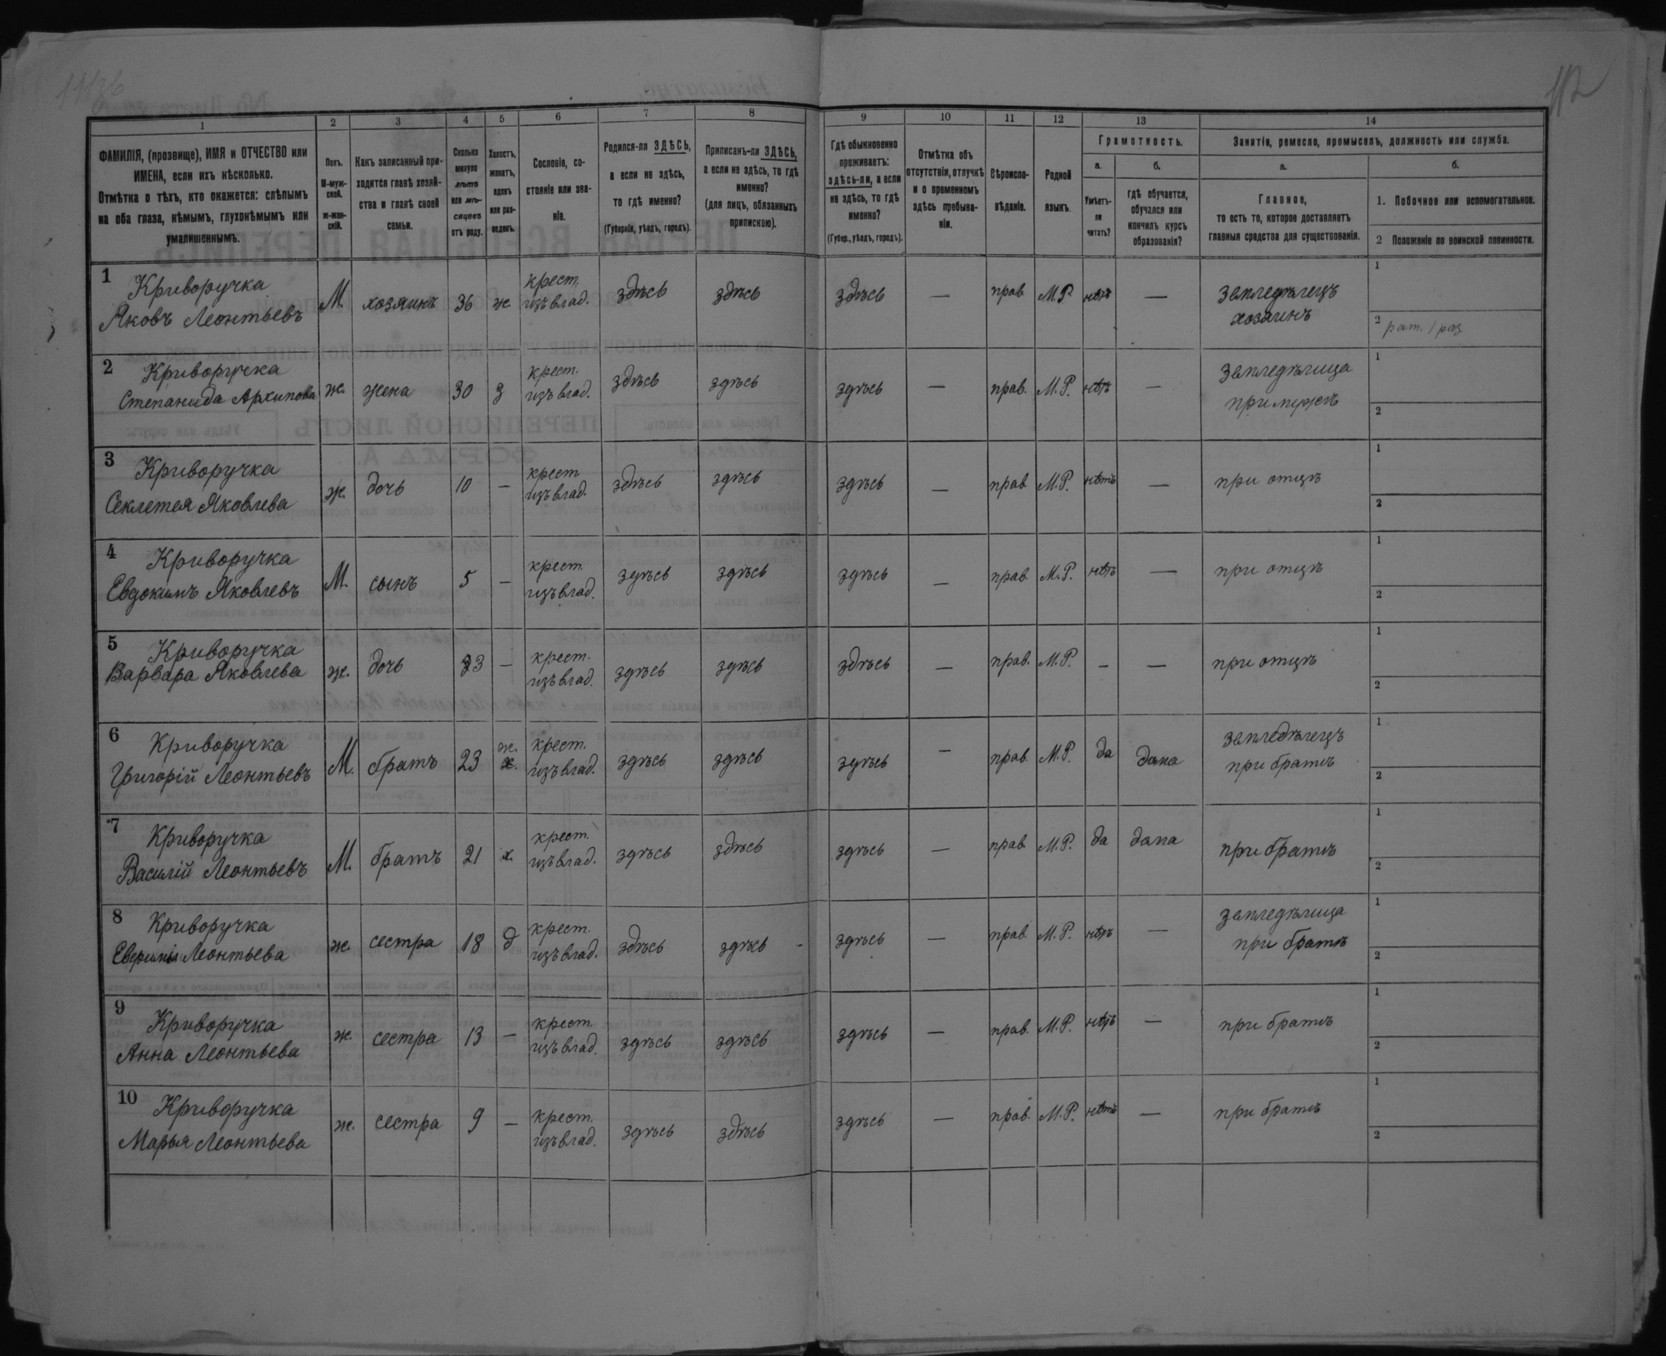 112
1 2 3 4 5 6 7 8 9 10 11 12 13 14
ФАМИЛІЯ, (прозвище), ИМЯ и ОТЧЕСТВО или
ИМЕНА, если ихъ нѣсколько.
Отмѣтка о тѣхъ, кто окажется: слѣпымъ
на оба глаза, нѣмымъ, глухонѣмымъ или
умалишеннымъ.
Полъ.
М-муж-
ской.
ж-жен-
скій.
Какъ записанный при-
ходится главѣ хозяй-
ства и главѣ своей
семьи.
Сколько
минуло
лѣтъ
или мѣ-
сяцевъ
отъ роду.
Холостъ,
женатъ,
вдовъ
или раз-
веденъ.
Сословіе, со-
стояніе или зва-
ніе.
Родился-ли ЗДѢСЬ,
а если не здѣсь,
то гдѣ именно?
(Губернія, уѣздъ, городъ).
Приписанъ-ли ЗДѢСЬ,
а если не здѣсь, то гдѣ
именно?
(для лицъ, обязанныхъ
припискою).
Гдѣ обыкновенно
проживаетъ:
здѣсь-ли, а если
не здѣсь, то гдѣ
именно?
(Губер., уѣздъ, городъ).
Отмѣтка объ
отсутствіи, отлучкѣ
и о временномъ
здѣсь пребыва-
ніи.
Вѣроиспо-
вѣданіе.
Родной
языкъ.
Грамотность.
а.
Умѣетъ-
ли
читать?
б.
гдѣ обучается,
обучался или
кончилъ курсъ
образованія?
Занятіе, ремесло, промыселъ, должность или служба.
а.
Главное,
то есть то, которое доставляетъ
главныя средства для существованія.
б.
1. Побочное или вспомогательное.
2 Положеніе по воинской повинности.
1 Криворучка
Яковъ Леонтьевъ
М хозяинъ 36 ж крест.
изъ влад. здѣсь здѣсь здѣсь — прав М.Р. нѣтъ —
земледѣлецъ
хозяинъ
1
2 рат. 1 раз
2 Криворучка
Степанида Архипова
ж. жена 30 з крест.
изъ влад. здѣсь здѣсь здѣсь — прав. М.Р. нѣтъ —
земледѣлица
при мужѣ
1
2
3 Криворучка
Секлетея Яковлева
ж. дочь 10 — крест
изъ влад. здѣсь здѣсь здѣсь — прав М.Р. нѣтъ —
при отцѣ
1
2
4 Криворучка
Евдокимъ Яковлевъ
М. сынъ 5 — крест
изъ влад. здѣсь здѣсь здѣсь — прав. М.Р. нѣтъ —
при отцѣ
1
2
5 Криворучка
Варвара Яковлева
ж. дочь 3 — крест.
изъ влад. здѣсь здѣсь здѣсь — прав. М.Р. — —
при отцѣ
1
2
6 Криворучка
Григорій Леонтьевъ
М. братъ 23 ж. х. крест.
изъ влад. здѣсь здѣсь здѣсь — прав. М.Р. да дома
земледѣлецъ
при братѣ
1
2
7 Криворучка
Василій Леонтьевъ
М. братъ 21 х. крест.
изъ влад. здѣсь здѣсь здѣсь — прав М.Р. да дома
при братѣ
1
2
8 Криворучка
Леонтьева
ж сестра 18 д крест.
изъ влад. здѣсь здѣсь здѣсь — прав М.Р. нѣтъ —
земледѣлица
при братѣ
1
2
9 Криворучка
Анна Леонтьева
ж. сестра 13 — крест.
изъ влад. здѣсь здѣсь здѣсь — прав. М.Р. нѣтъ —
при братѣ
1
2
10 Криворучка
Марья Леонтьева
ж. сестра 9 — крест.
изъ влад. здѣсь здѣсь здѣсь — прав. М.Р. нѣтъ —
при братѣ
1
2